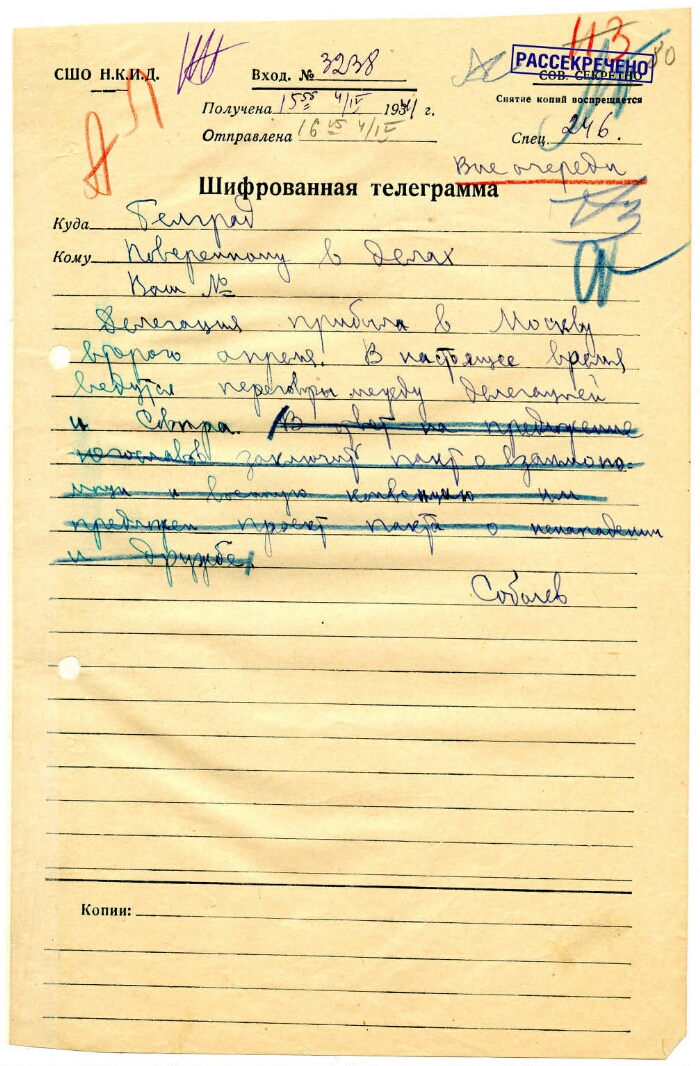 СШО Н.К.И.Д.
Вход. № 3238
РАССЕКРЕЧЕНО
СОВ. СЕКРЕТНО
Снятие копий воспрещается
Получена 15 55 4/IV 1941 г.
Отправлена 16 15 4/IV
Спец. 246.
Вне очереди
Шифрованная телеграмма
Куда Белград
Кому Поверенному в делах
Ваш №
Делегация прибыла в Москву
второго апреля. В настоящее время
ведутся переговоры между делегацией
и Совпра. В ответ на предложение
югославов заключить пакт о взаимопо-
мощи и военную конвенцию им
предложен проект пакта о ненападении
и дружбе.
Соболев
Копии: